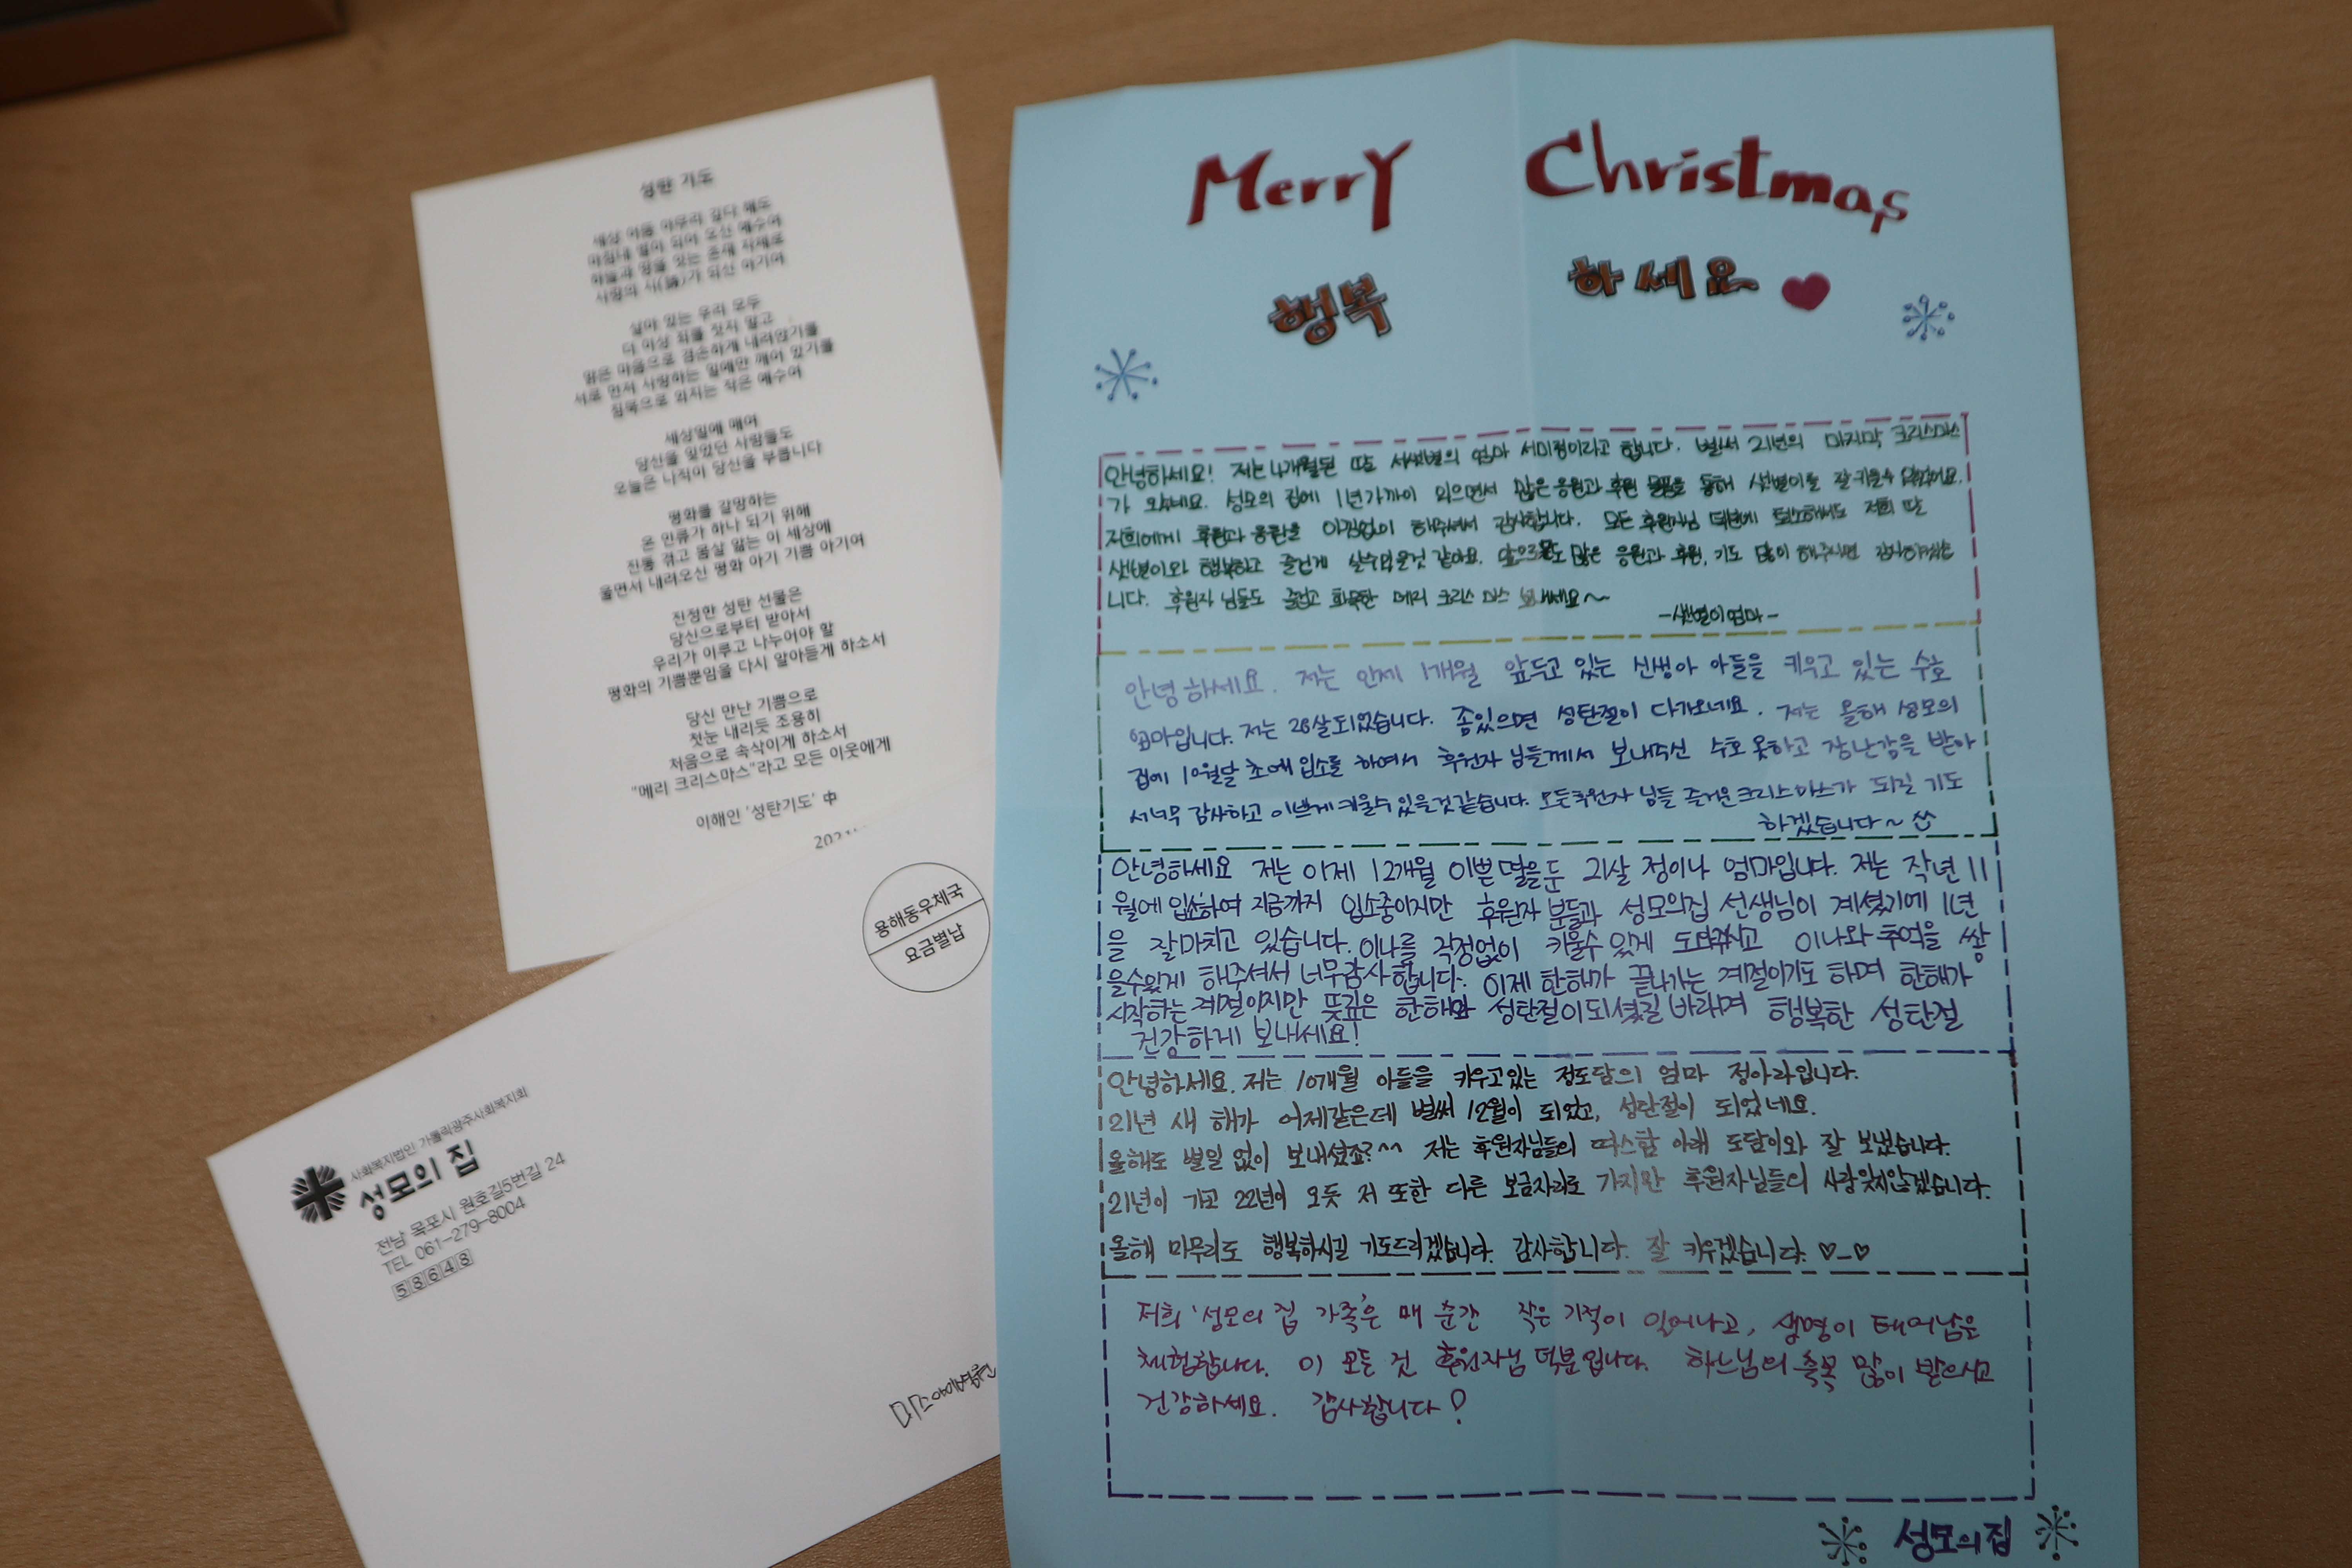 성탄 기도
세상 어둠 아무리 깊다 해도
마침내 별이 되어 오신 예수여
하늘과 땅을 잇는 존재 자체로
사랑의 시(詩)가 되신 아기여
살아 있는 우리 모두
더 이상 죄를 짓지 말고
맑은 마음으로 겸손하게 내려앉기를
서로 먼저 사랑하는 일에만 깨어 있기를
침묵으로 외치는 작은 예수여
세상일에 매여
당신을 잊었던 사람들도
오늘은 나직이 당신을 부릅니다
평화를 갈망하는
온 인류가 하나 되기 위해
진통 겪고 몸살 앓는 이 세상에
울면서 내려오신 평화 아기 기쁨 아기여
진정한 성탄 선물은
당신으로부터 받아서
우리가 이루고 나누어야 할
평화의 기쁨뿐임을 다시 알아듣게 하소서
당신 만난 기쁨으로
첫눈 내리듯 조용히
처음으로 속삭이게 하소서
"메리 크리스마스"라고 모든 이웃에게
이해인 '성탄기도' 中
용해동우체국
요금별납
사회복지법인 가톨릭광주사회복지회
성모의 집
전남 목포시 원호길5번길 24
TEL 061-279-8004
58648
Merry Christmas
행복 하세요
안녕하세요! 저는 4개월된 딸 서샛별의 엄마 서미정이라고 합니다. 벌써 21년의 마지막 크리스마스
가 왔네요. 성모의 집에 1년 가까이 있으면서 많은 응원과 후원 물품을 통해 샛별이를 잘 키울수 있었어요.
저희에게 후원과 응원을 아낌없이 해주셔서 감사합니다. 모든 후원자님 덕분에 퇴소해서도 저희 딸
샛별이와 행복하고 즐겁게 살수있을것 같아요. 앞으로도 많은 응원과 후원, 기도 많이 해주시면 감사하겠습
니다. 후원자 님들도 즐겁고 화목한 메리 크리스마스 보내세요~
-샛별이엄마-
안녕하세요. 저는 언제 1개월 앞두고 있는 신생아 아들을 키우고 있는 수호
엄마입니다. 저는 28살되었습니다. 좀있으면 성탄절이 다가오네요. 저는 올해 성모의
집에 10월달 초에 입소를 하여서 후원자 님들께서 보내주신 수호 옷하고 장난감을 받아
서 너무 감사하고 이쁘게 키울수 있을것같습니다. 모든후원자 님들 즐거운크리스마스가 되길 기도
하겠습니다~
안녕하세요 저는 이제 12개월 이쁜 딸을 둔 21살 정이나 엄마입니다. 저는 작년 11
월에 입소하여 지금까지 입소중이지만 후원자 분들과 성모의집 선생님이 계셨기에 1년
을 잘마치고 있습니다. 이나를 걱정없이 키울수 있게 도와주시고 이나와 추억을 쌓
을수있게 해주셔서 너무감사합니다. 이제 한해가 끝나가는 계절이기도 하며 한해가
시작하는 계절이지만 뜻깊은 한해와 성탄절이되셨길 바라며 행복한 성탄절
건강하게 보내세요!
안녕하세요. 저는 10개월 아들을 키우고있는 정도담의 엄마 정아라입니다.
21년 새 해가 어제같은데 벌써 12월이 되었고, 성탄절이 되었네요.
올해도 별일 없이 보내셨죠?^^ 저는 후원자님들의 따스함 아래 도담이와 잘 보냈습니다.
21년이 가고 22년이 오듯 저 또한 다른 보금자리로 가지만 후원자님들의 사랑잊지않겠습니다.
올해 마무리도 행복하시길 기도드리겠습니다. 감사합니다. 잘 키우겠습니다. ♡_♡
저희 '성모의 집 가족'은 매 순간 작은 기적이 일어나고, 생명이 태어남을
체험합니다. 이 모든 건 후원자님 덕분입니다. 하느님의 축복 많이 받으시고
건강하세요. 감사합니다!
성모의집